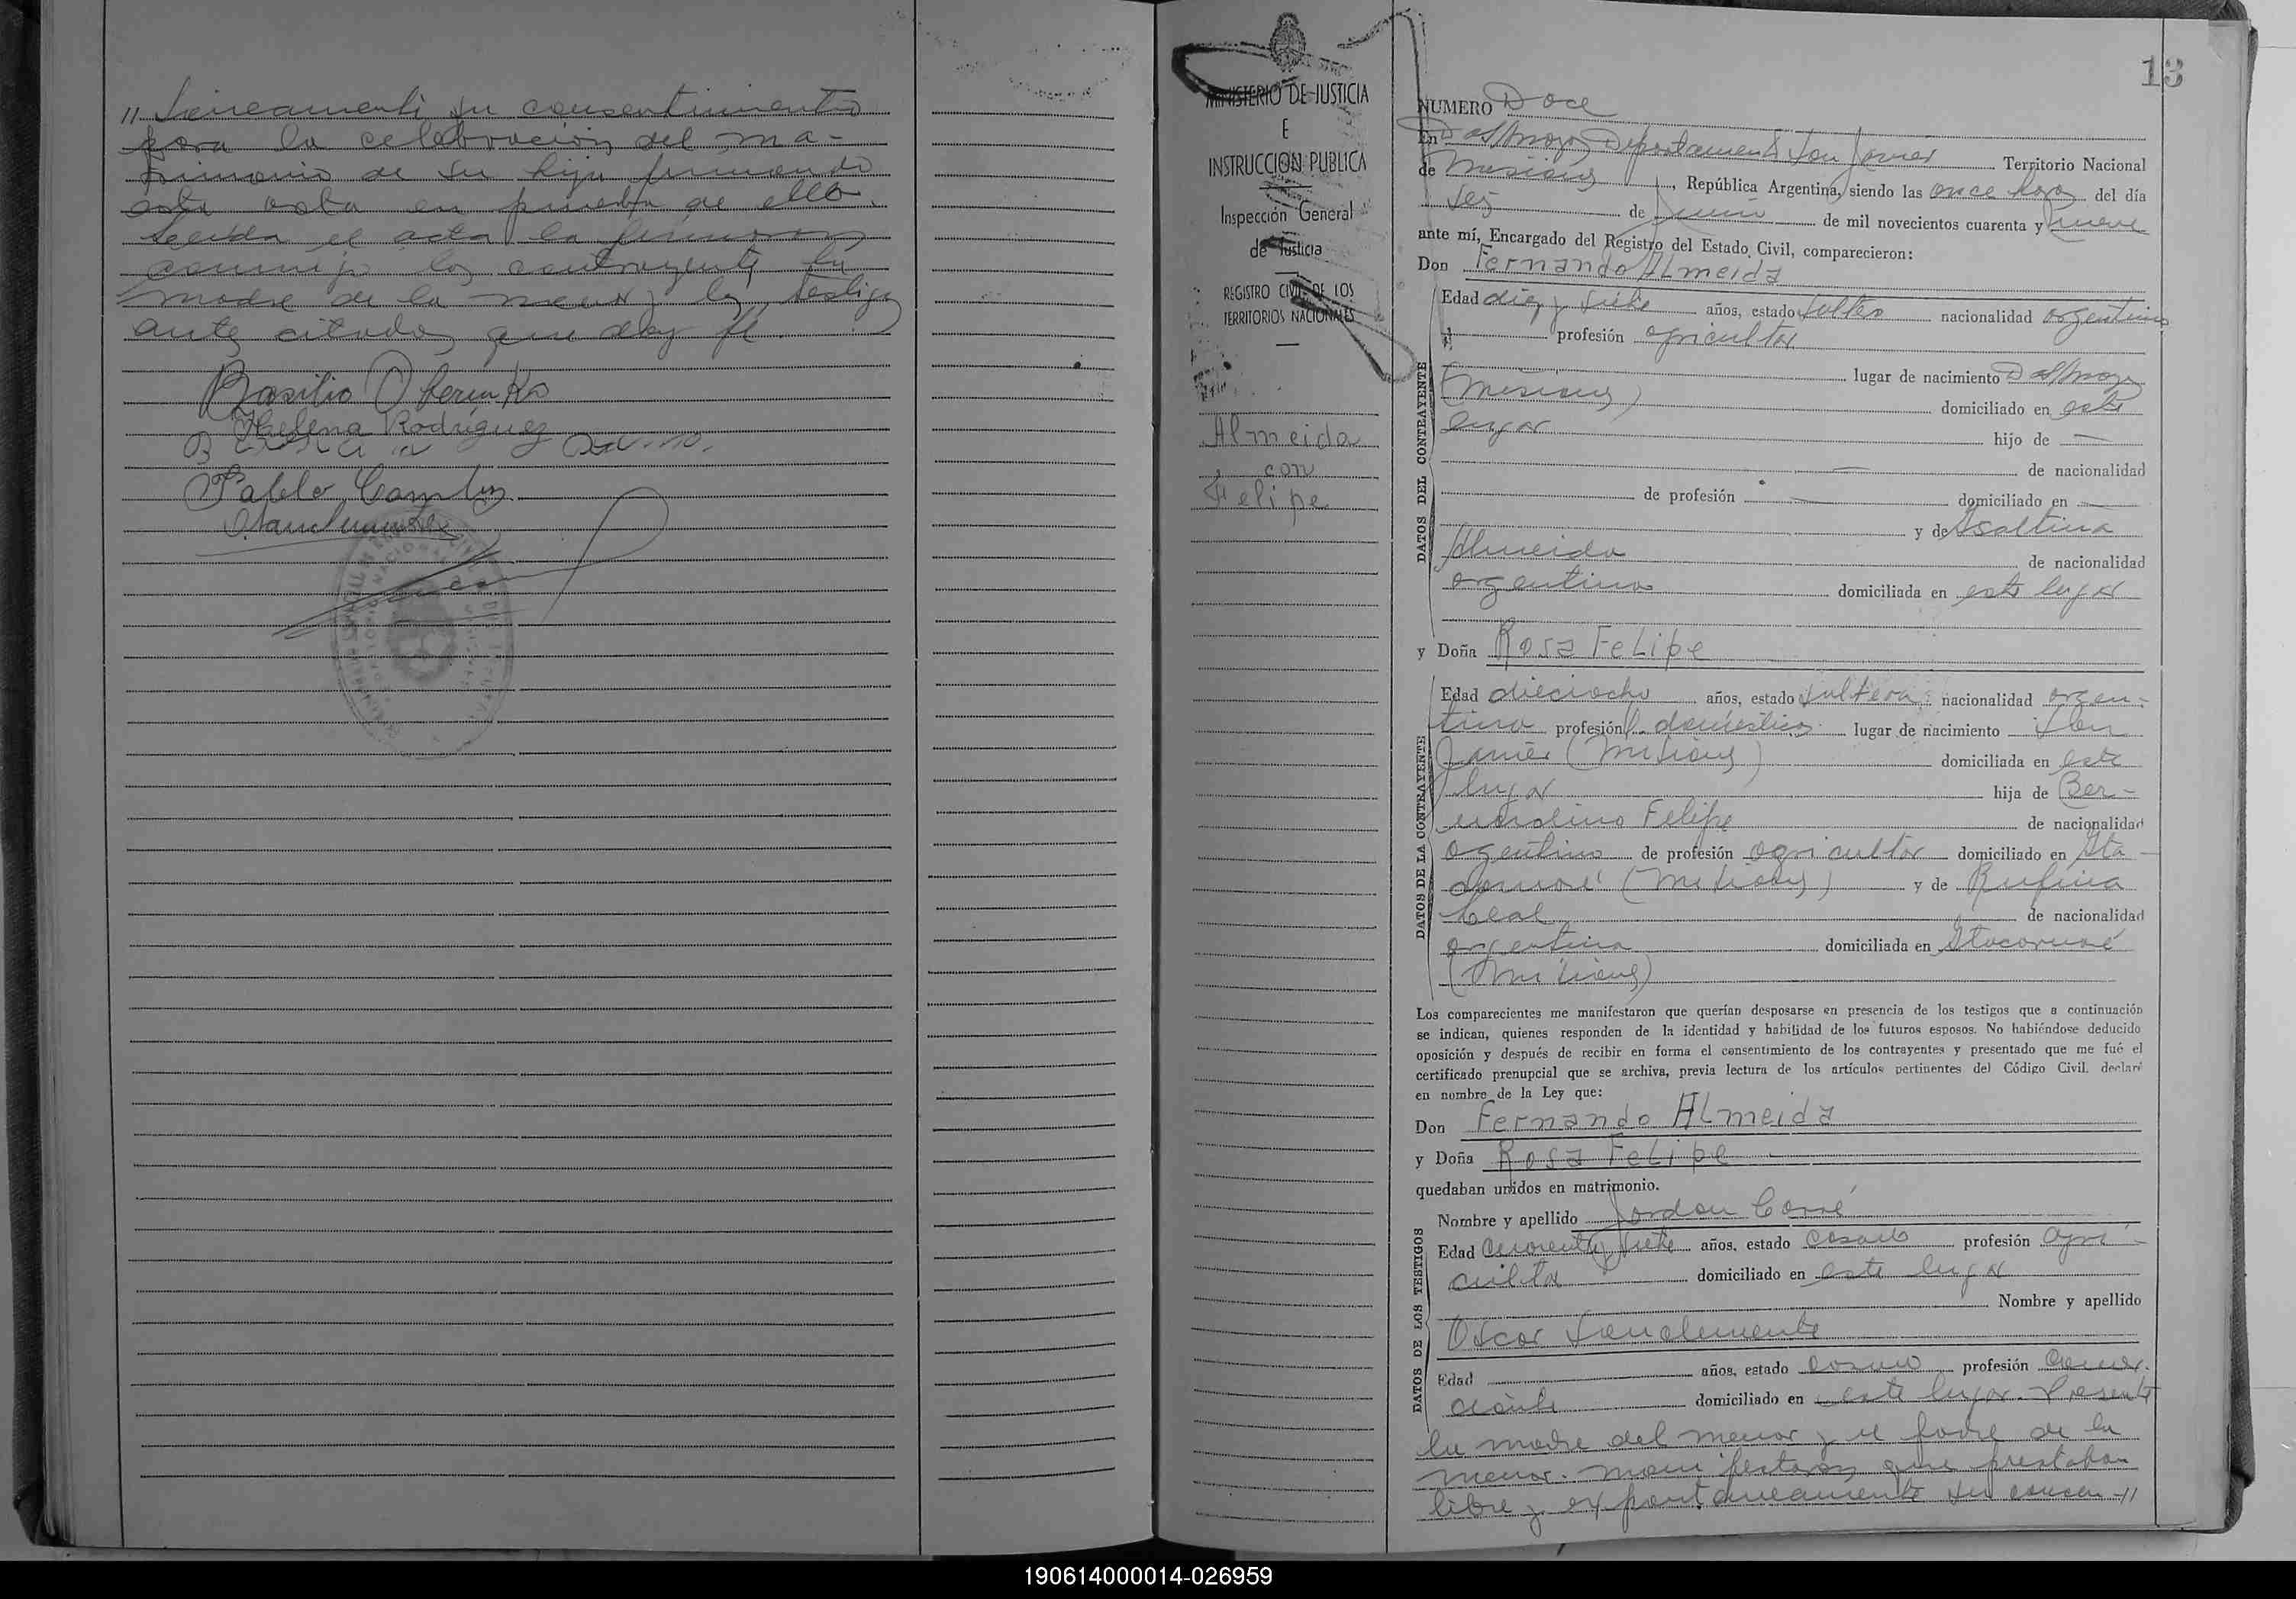 // táneamente su consentimiento
para la celebración del ma-
trimonio de su hija firmando
esta acta en prueba de ello.
Leída el acta la firmaron
conmigo los contrayentes la
madre de la menor y los testigos
antes citados que doy fe.
Basilio
Helena Rodríguez
Pablo
MINISTERIO DE JUSTICIA
E
INSTRUCCION PUBLICA
Inspección General
de Justicia
REGISTRO CIVIL DE LOS
TERRITORIOS NACIONALES
Almeida
con
Felipe
13
NUMERO Doce
En Departamento San Javier Territorio Nacional
de Misiones, República Argentina, siendo las once horas del día
seis de junio de mil novecientos cuarenta y nueve
ante mí, Encargado del Registro del Estado Civil, comparecieron:
Don Fernando Almeida
DATOS DEL CONTRAYENTE
Edad diez y siete años, estado soltero nacionalidad argentino
profesión agricultor
lugar de nacimiento
(Misiones) domiciliado en este
lugar hijo de —
— de nacionalidad
de profesión — domiciliado en —
y de
Almeida de nacionalidad
argentina domiciliada en este lugar
y Doña Rosa Felipe
DATOS DE LA CONTRAYENTE
Edad dieciocho años, estado soltera nacionalidad argen-
tina profesión lugar de nacimiento San
Javier (Misiones) domiciliada en este
lugar hija de Ber-
nardino Felipe de nacionalidad
argentino de profesión agricultor domiciliado en Ita-
caruaré (Misiones) y de Rufina
Leal de nacionalidad
argentina domiciliada en Itacaruaré
(Misiones)
Los comparecientes me manifestaron que querían desposarse en presencia de los testigos que a continuación
se indican, quienes responden de la identidad y habilidad de los futuros esposos. No habiéndose deducido
oposición y después de recibir en forma el consentimiento de los contrayentes y presentado que me fué el
certificado prenupcial que se archiva, previa lectura de los artículos pertinentes del Código Civil, declaré
en nombre de la Ley que:
Don Fernando Almeida
y Doña Rosa Felipe
quedaban unidos en matrimonio.
DATOS DE LOS TESTIGOS
Nombre y apellido Jordan
Edad cuarenta y siete años, estado casado profesión agri-
cultor domiciliado en este lugar
Nombre y apellido
Oscar Sanclemente
Edad años, estado casado profesión comer-
ciante domiciliado en este lugar. Presente
la madre del menor y el padre de la
menor. manifestaron que prestaban
libre y expontaneamente su consen-//
190614000014-026959